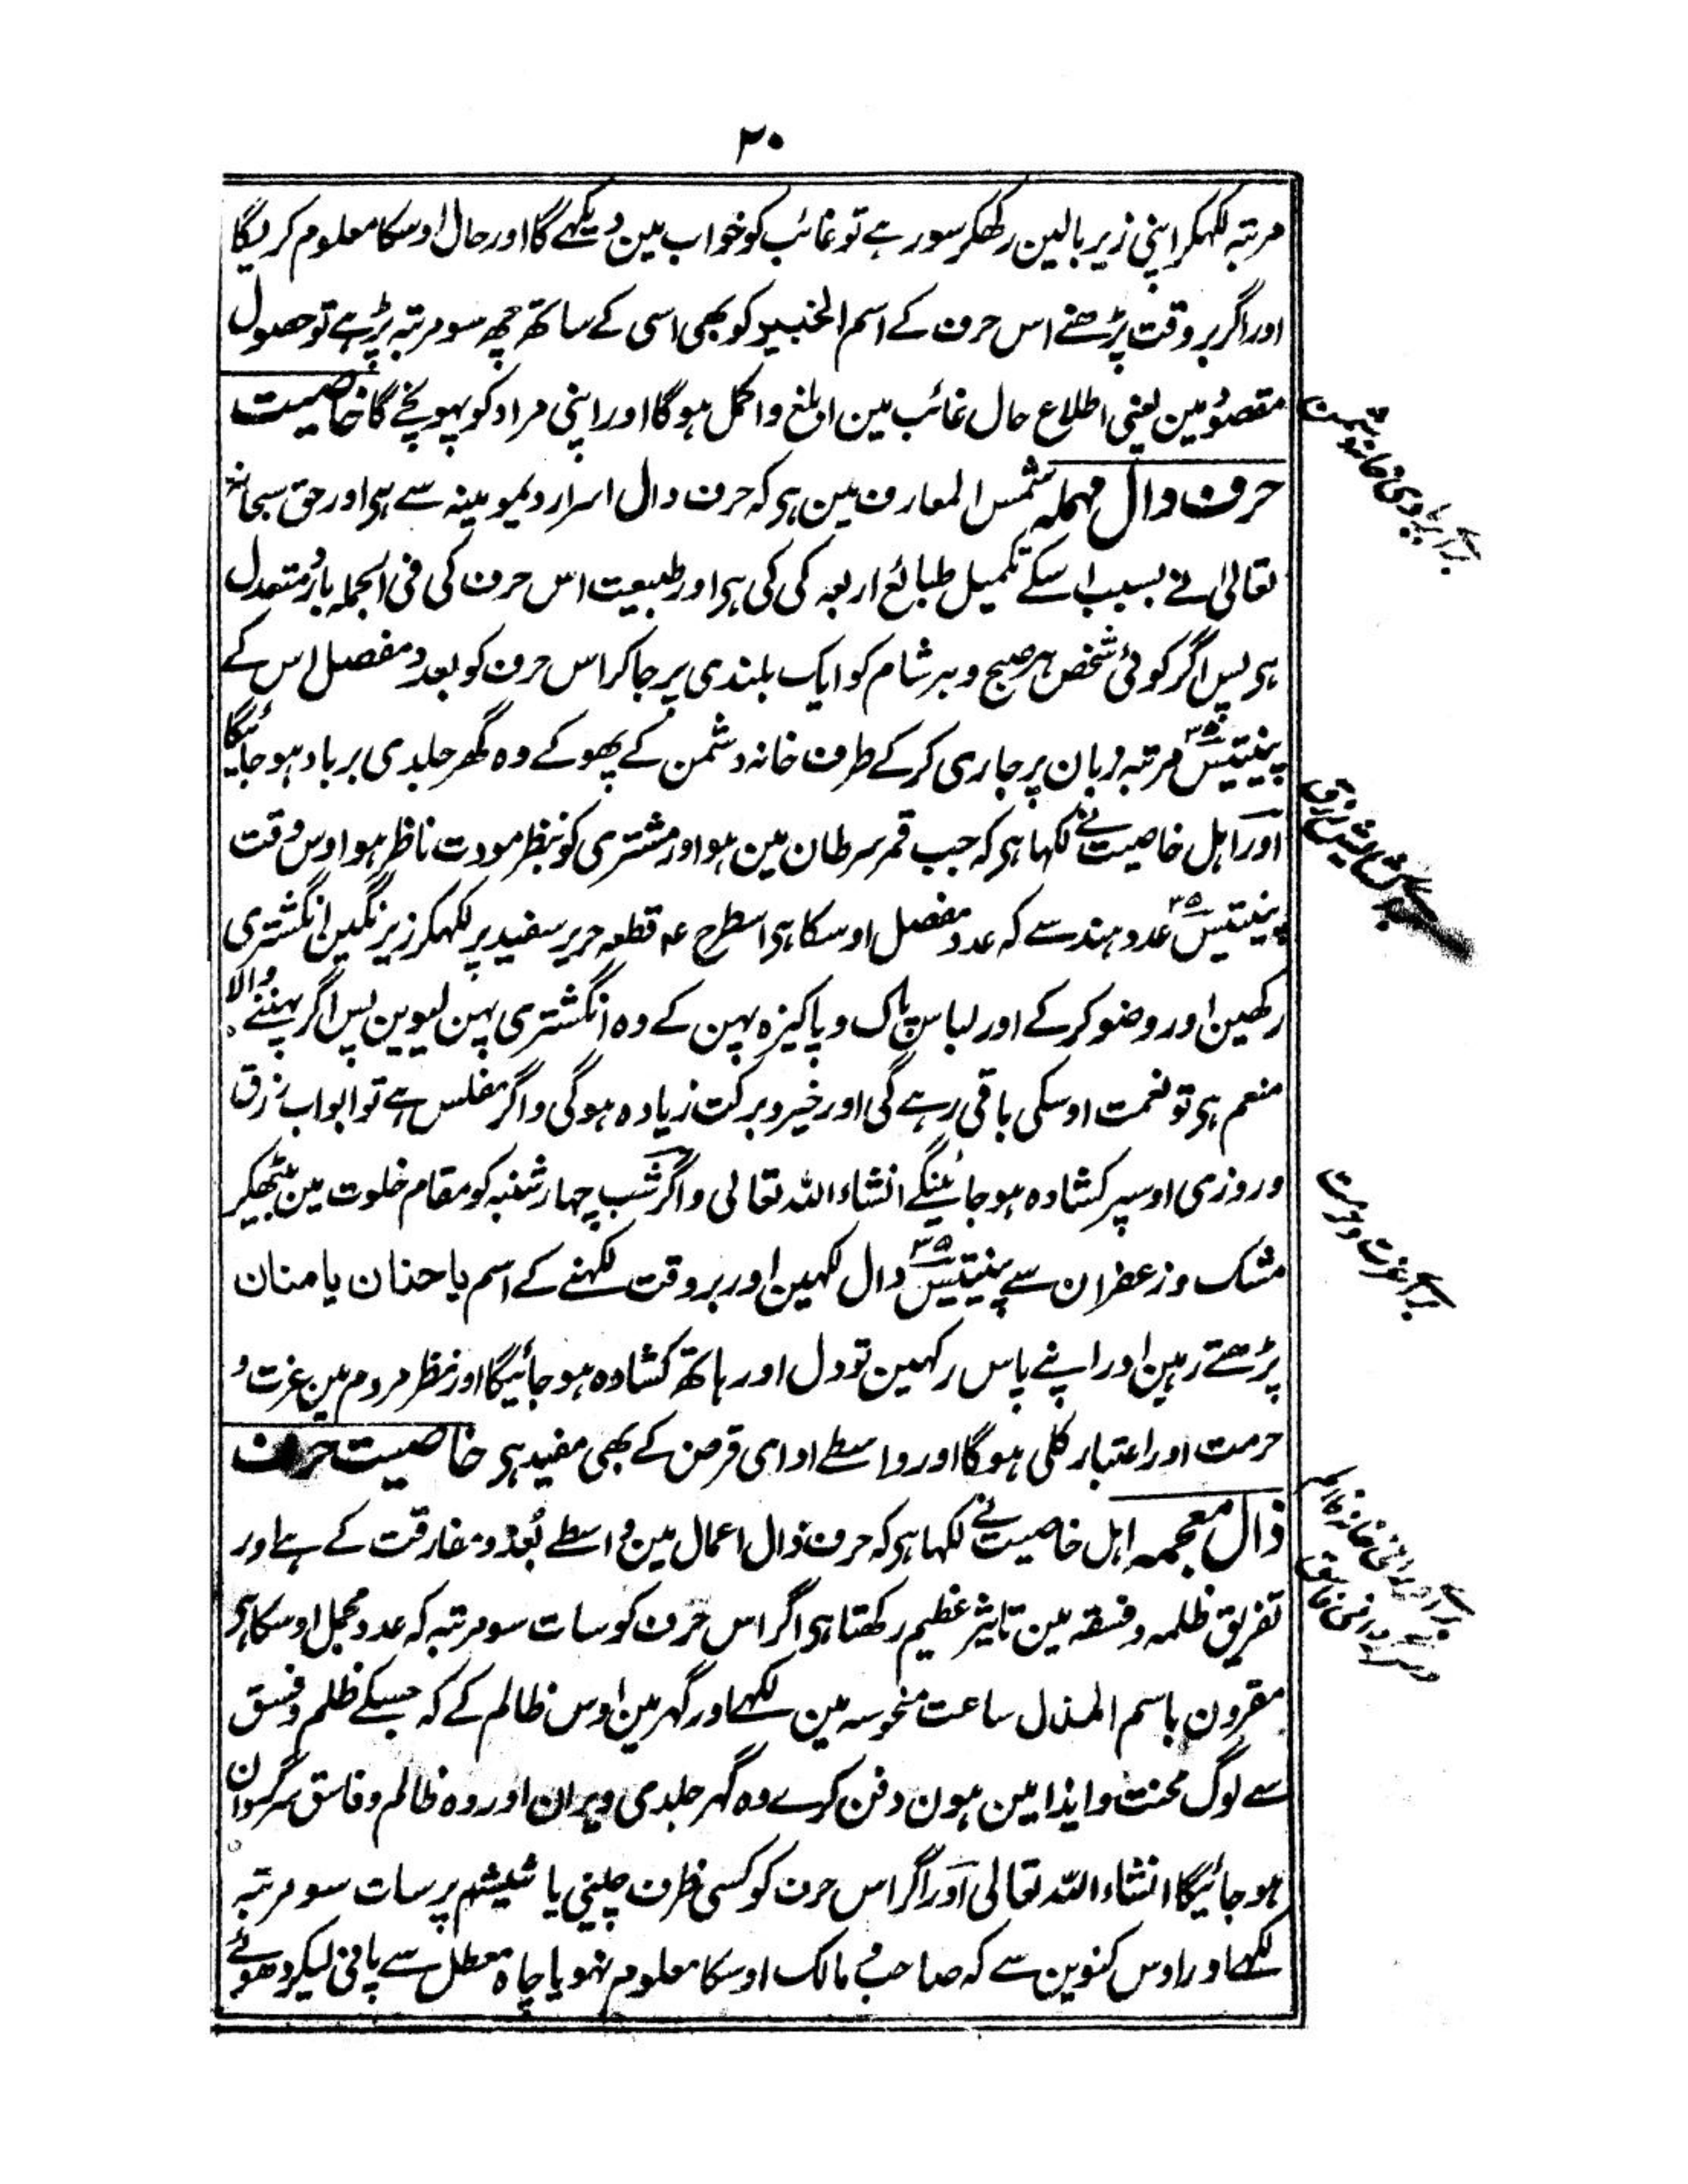 ۲۰
مرتبہ لکہکر اپنی زیر بالین رکھکر سور ہے تو غائب کو خواب مین دیکہے گا اور حال اوسکا معلوم کر لیگا
اور اگر بروقت پڑھنے اس حرف کے اسم الخبیر کو بھی اسی کے ساتھ چھ سو مرتبہ پڑہے تو حصول
مقصود مین یعنی اطلاع حال غائب مین ابلغ و اکمل ہوگا اور اپنی مراد کو پہونچے گا خاصیت
حرف دال مہملہ شمس المعارف مین ہی کہ حرف دال اسرار دیمومیتہ سے ہی اور حق سبحانہ
تعالیٰ نے بسبب اسکے تکمیل طبائع اربعہ کی کی ہی اور طبیعت اس حرف کی فی الجملہ بارد معتدل
ہی پس اگر کوئی شخص ہر صبح و ہر شام کو ایک بلندی پر جا کر اس حرف کو بعدد مفصل اس کے
پینتیس ۳۵ مرتبہ زبان پر جاری کرکے طرف خانہ دشمن کے پھوکے وہ گھر جلدی برباد ہو جائیگا
اور اہل خاصیت نے لکہا ہی کہ جب قمر سرطان مین ہو اور مشتری کو بنظر مودت ناظر ہو اوس وقت
پینتیس ۳۵ عدد ہندسے کہ عدد مفصل اوسکا ہی اسطرح عہ قطعہ حریر سفید پر لکہکر زیر نگین انگشتری
رکھین اور وضو کرکے اور لباس پاک و پاکیزہ پہن کے وہ انگشتری پہن لیوین پس اگر پہننے والا
منعم ہی تو نعمت اوسکی باقی رہے گی اور خیر و برکت زیادہ ہوگی و اگر مفلس ہے تو ابواب رزق
و روزی اوسپر کشادہ ہو جائینگے انشاء اللہ تعالی و اگر شب چہار شنبہ کو مقام خلوت مین بیٹھکر
مشک و زعفران سے پینتیس ۳۵ دال لکہین اور بروقت لکہنے کے اسم یا حنان یا منان
پڑھتے رہین اور اپنے پاس رکہین تو دل اور ہاتھ کشادہ ہو جائیگا اور نظر مردم مین عزت و
حرمت اور اعتبار کلی ہوگا اور واسطے ادای قرض کے بھی مفید ہی خاصیت حرف
ذال معجمہ اہل خاصیت نے لکہا ہی کہ حرف ذال اعمال مین واسطے بُعد و مفارقت کے ہے اور
تفریق ظلمہ و فسقہ مین تاثیر عظیم رکھتا ہی اگر اس حرف کو سات سو مرتبہ کہ عدد مجمل اوسکا ہی
مقرون باسم المذل ساعت منحوسہ مین لکہے اور گہر مین اوس ظالم کے کہ جسکے ظلم و فسق
سے لوگ محنت و ایذا مین ہون دفن کرے وہ گہر جلدی ویران اور وہ ظالم و فاسق سرگردان
ہو جائیگا انشاء اللہ تعالی اور اگر اس حرف کو کسی ظرف چینی یا شیشہ پر سات سو مرتبہ
لکہے اور اوس کنوین سے کہ صاحب مالک اوسکا معلوم نہو یا چاہ معطل سے پانی لیکر دھوئے
برای بربادی خانہ دشمن
برای عزت و حرمت